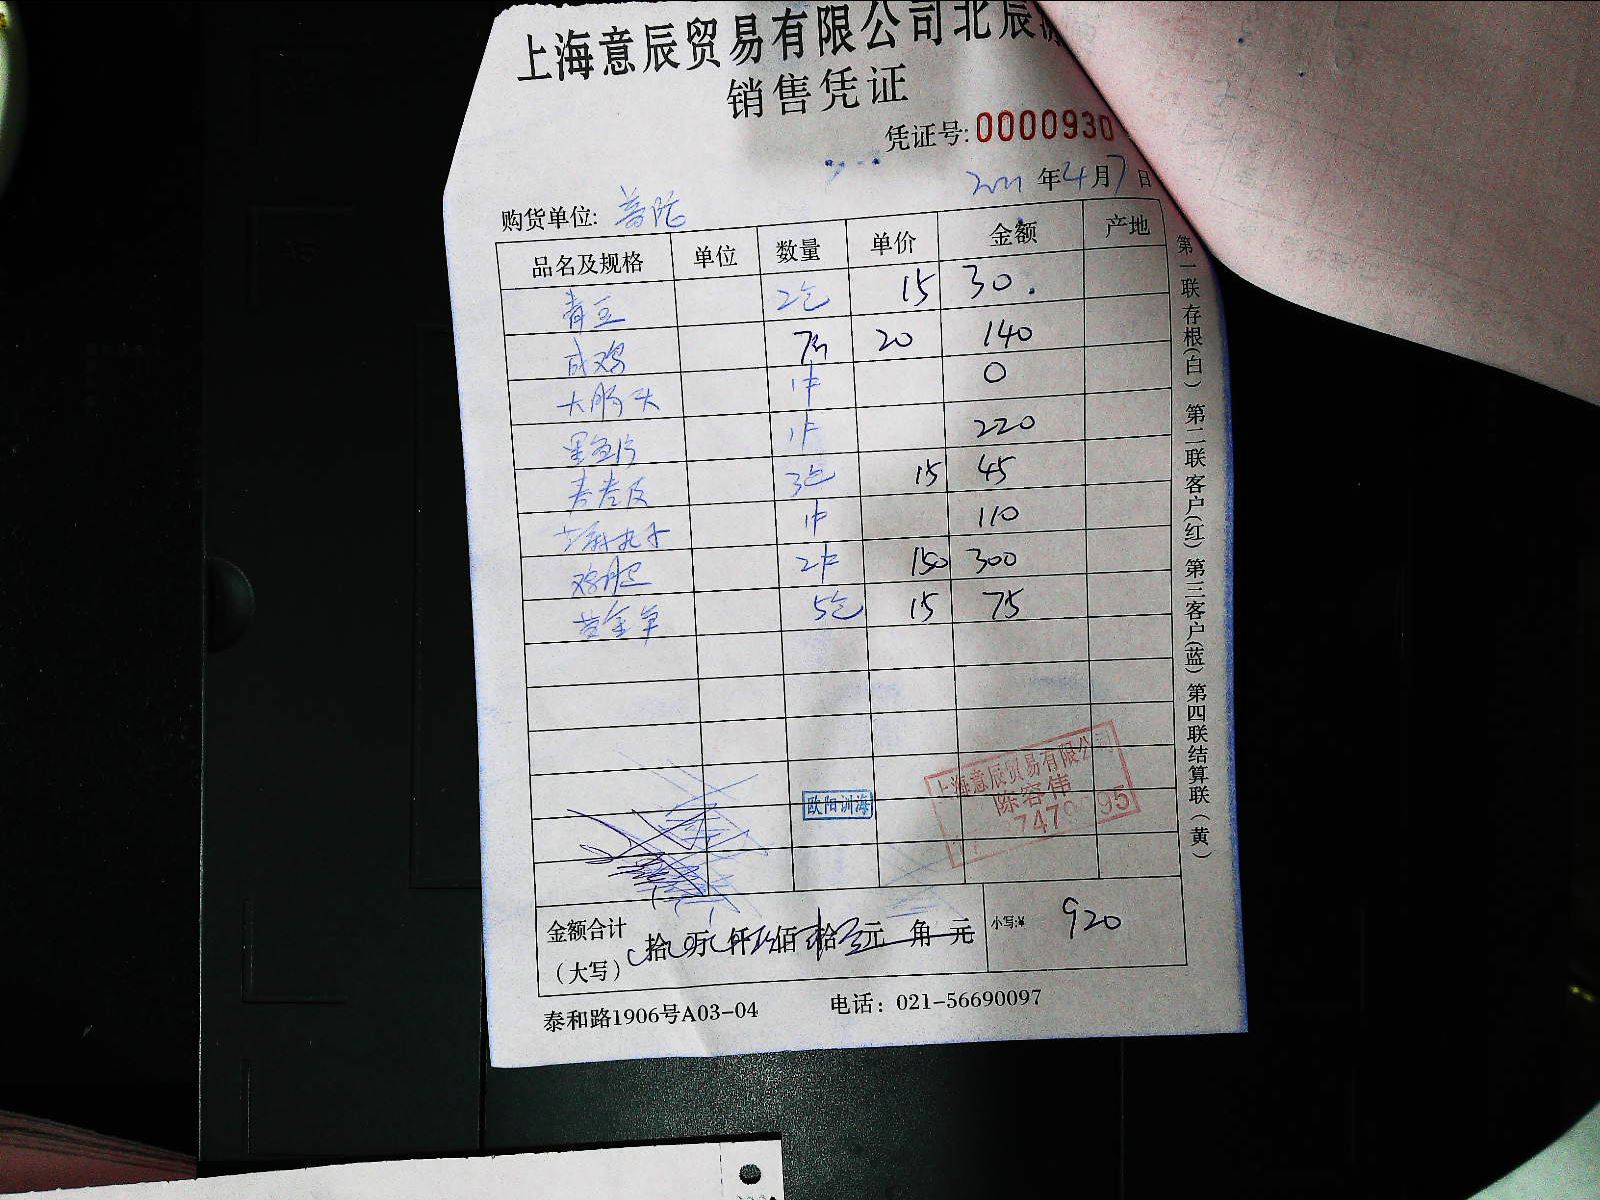 上海意辰贸易有限公司北辰
销售凭证
凭证号:0000930
2021年4月7日
购货单位:普陀
品名及规格 单位 数量 单价 金额 产地
青豆 2包 15 30.
成鸡 7只 20 140
大肠头 1件 0
黑鱼片 1件 220
3包 15 45
1件 110
2件 150 300
黄金单 5包 15 75
上海意辰贸易有限公司
陈容伟
欧阳训海
747 95
金额合计
(大写) 拾 万 仟 佰 拾 元 角 元 小写:¥ 920
泰和路1906号A03-04 电话: 021-56690097
第一联存根(白) 第二联客户(红) 第三客户(蓝) 第四联结算联(黄)